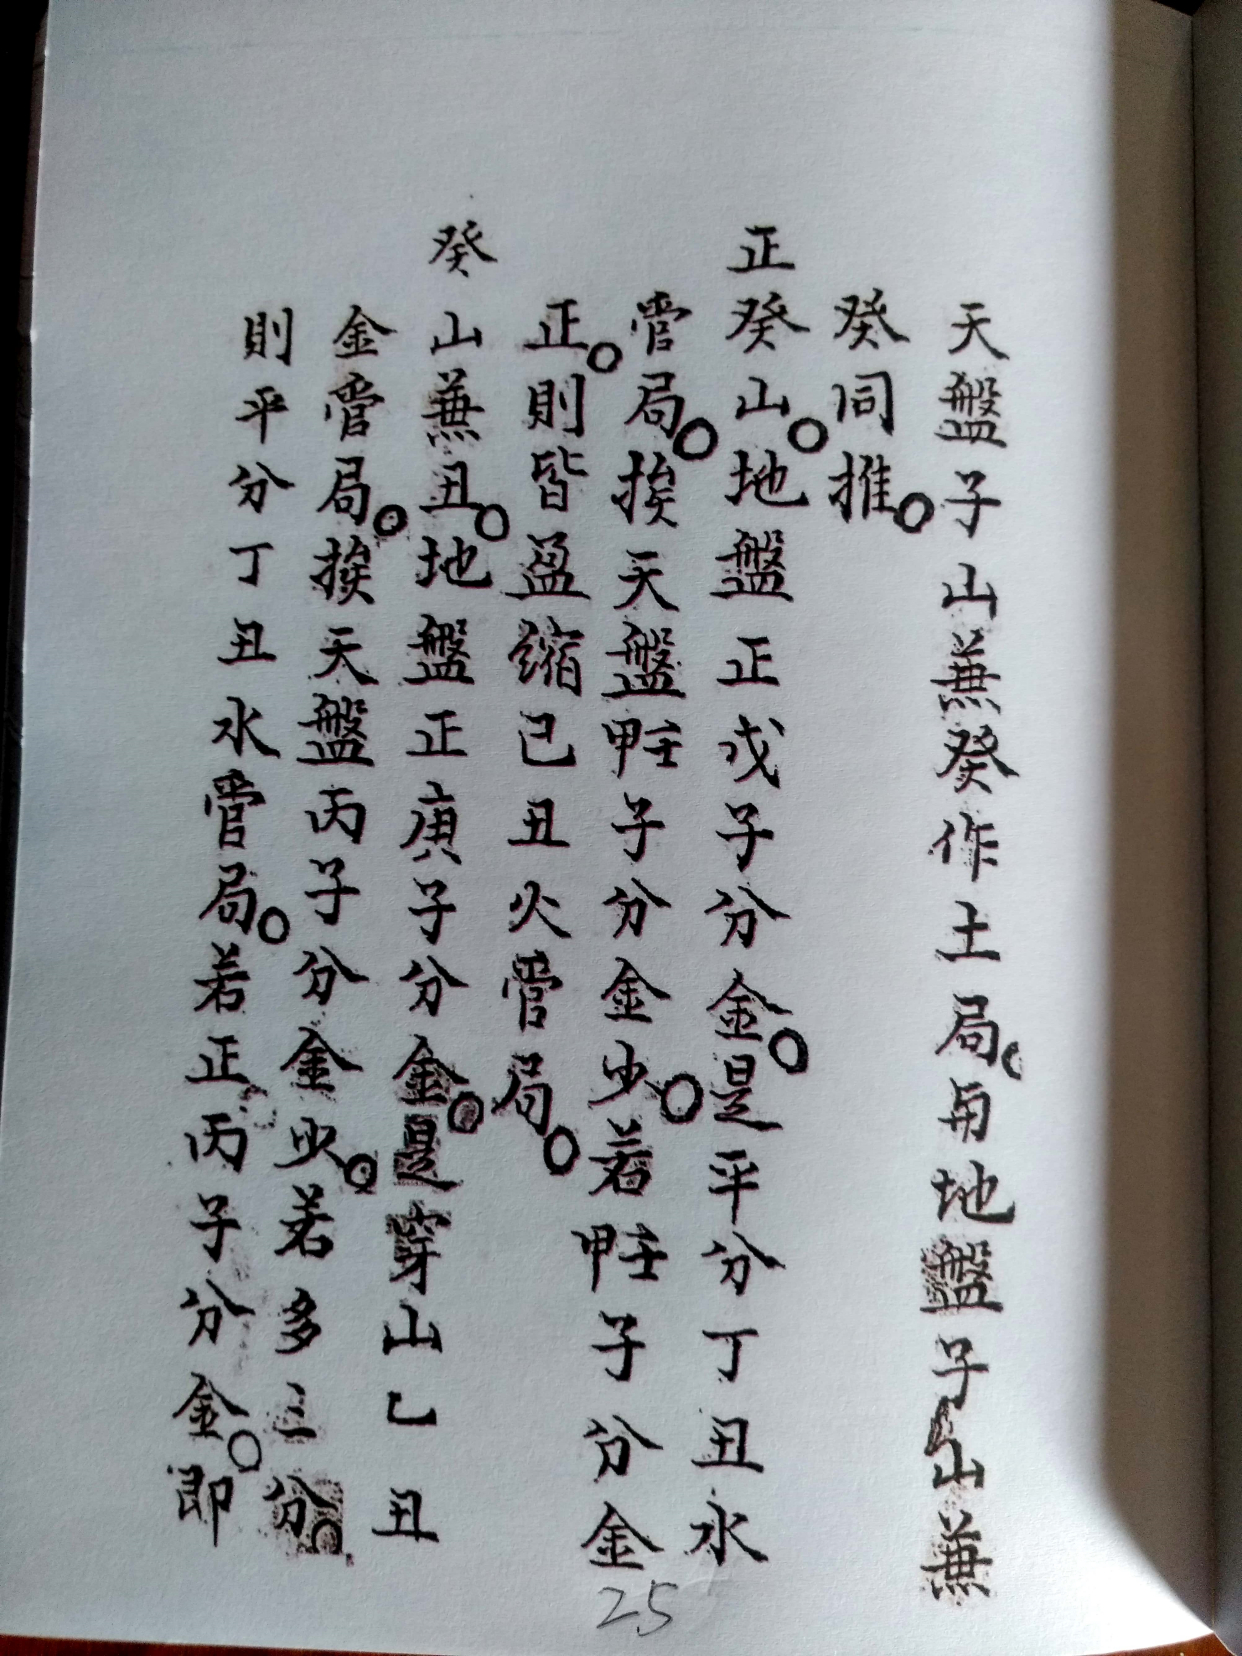 天盤子山蕪癸作土局。用地盤子山蕪
癸同推。
正癸山。地盤正戊子分金。是平分丁丑水
管局。挨天盤甲壬子分金少。若甲壬子分金
正。則皆盈缩己丑火管局。
癸山蕪丑。地盤正庚子分金。是穿山乙丑
金管局。挨天盤丙子分金少。若多三分。
則平分丁丑水管局。若正丙子分金。即
25